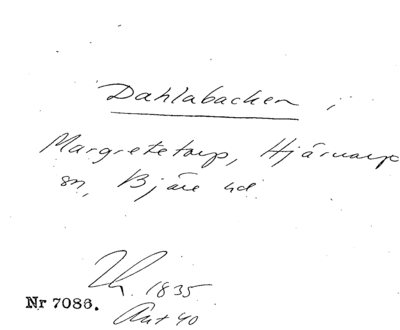 Dahlabacken i
Margretetorp, Hjärnarp
sn, Bjäre hd
1835
Nr 7086.
Ant 40